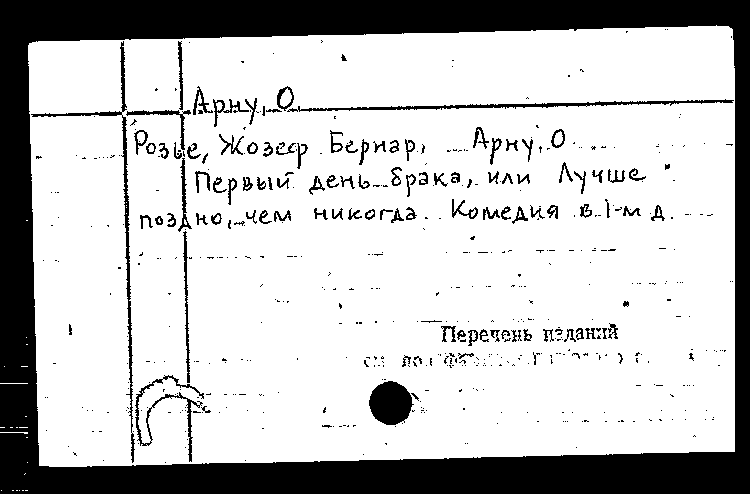 Арну, О.
Розье, Жозеф Бернар, Арну, О
Первый день брака, или Лучше
поздно, чем никогда. Комедия в 1-м д.
Перечень изданий
см.